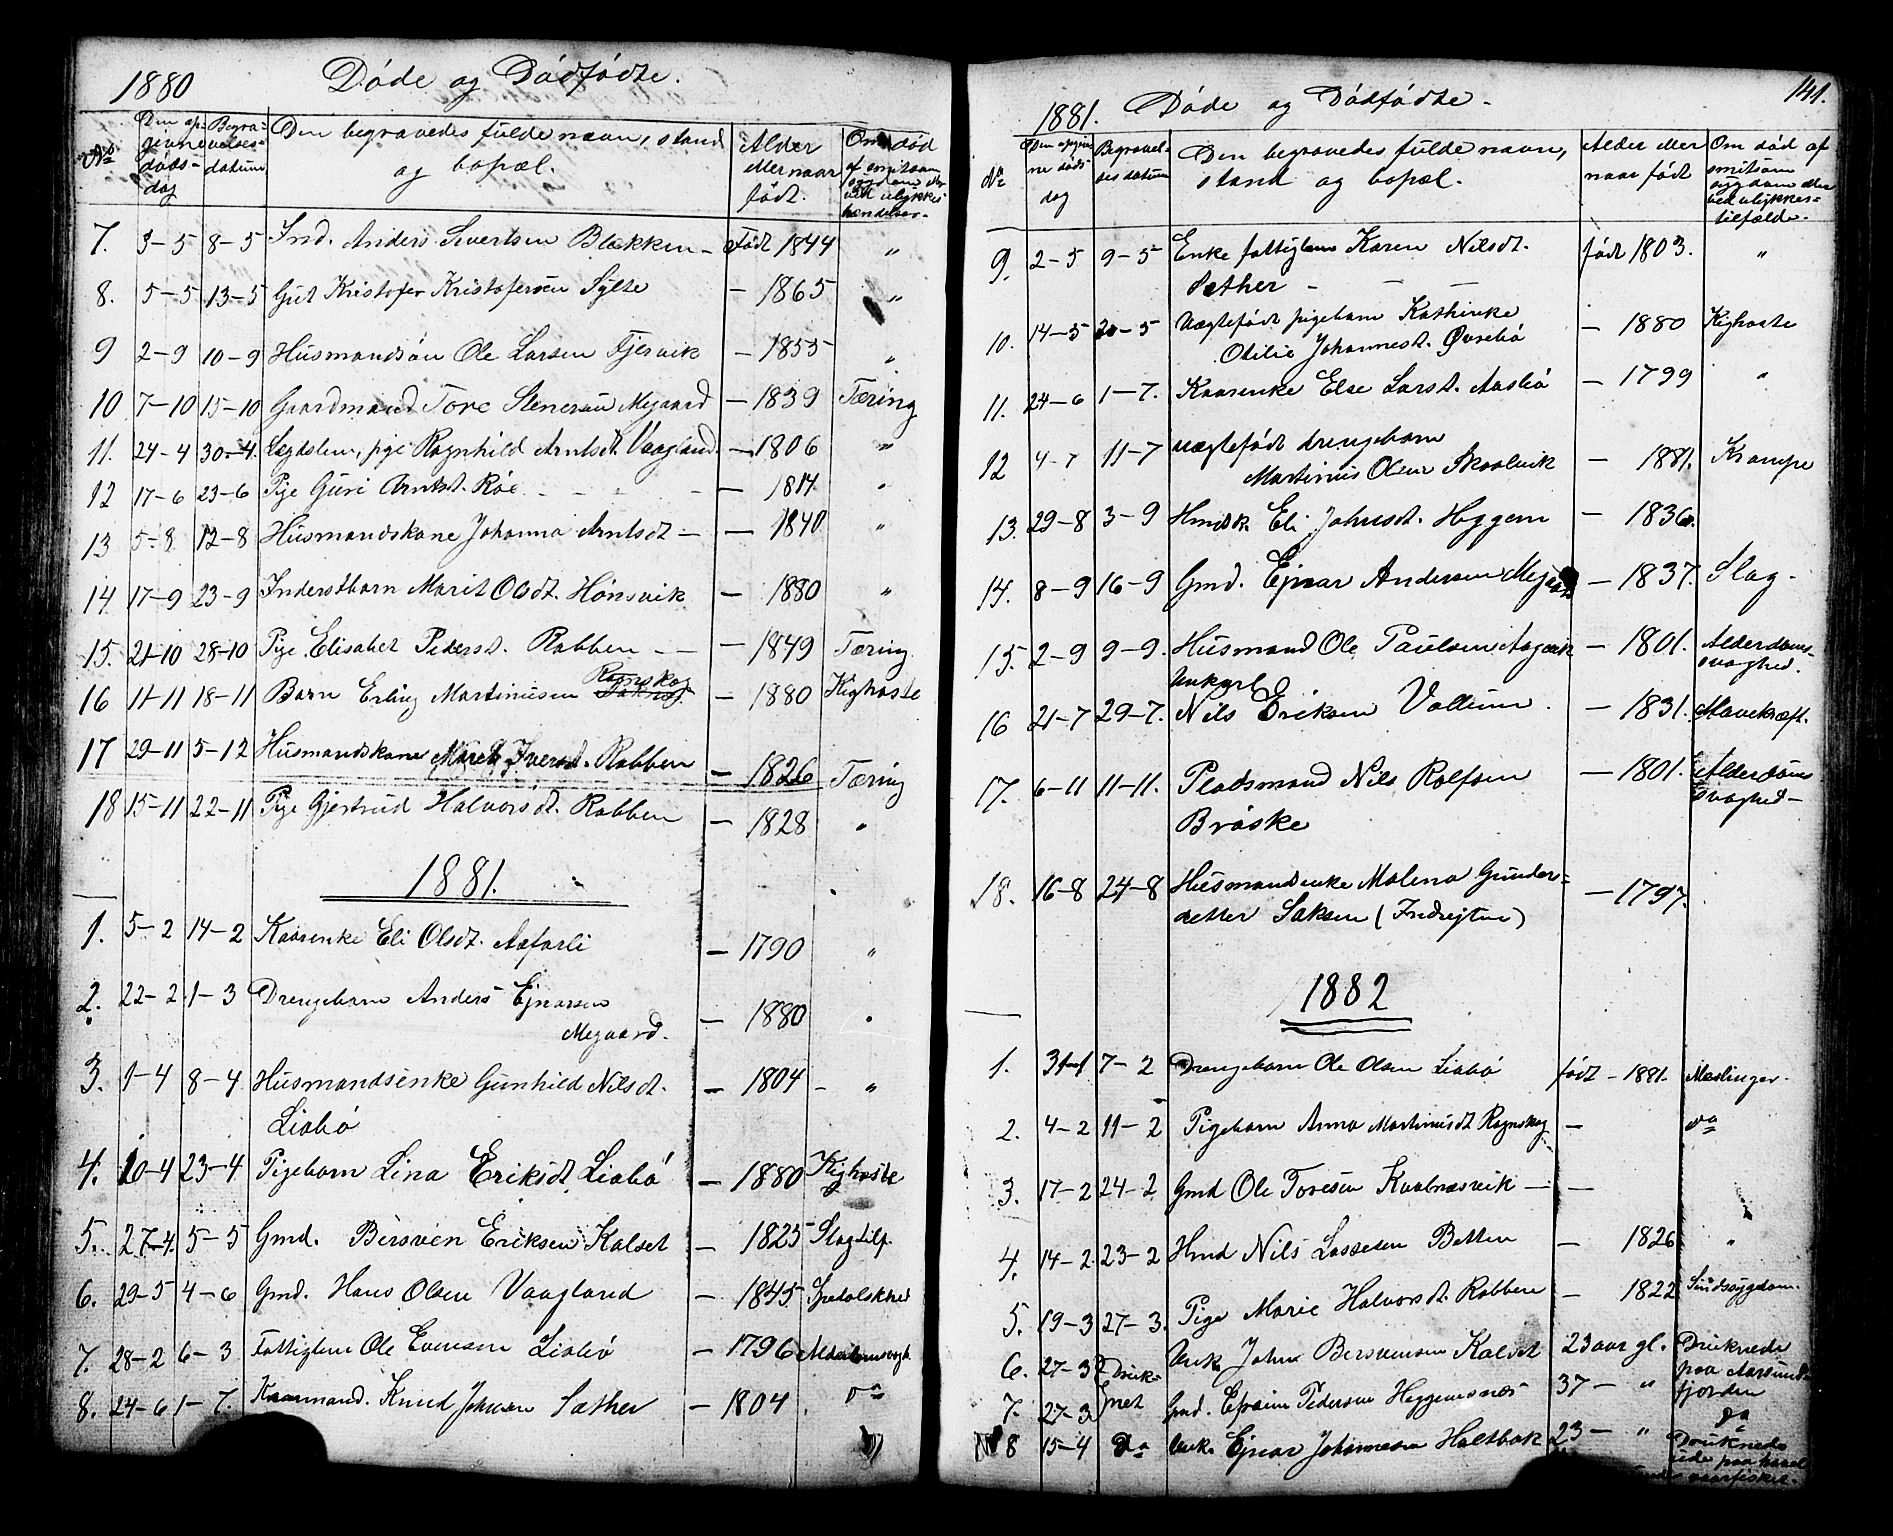 1880 Døde og Dødfødte.
No Den opgivne dødsdag Begravelsesdatum Den begravedes fulde navn, stand og bopæl. Alder eller naar født. Om død af smitsom sygdom eller ved ulykkeshændelser.
7. 3-5 8-5 Ind. Anders Sivertsen Blekken - Født 1844 "
8. 5-5 13-5 Gut Kristofer Kristofersen Sylte - 1865 "
9 2-9 10-9 Husmandsøn Ole Larsen Fjervik - 1855 "
10 7-10 15-10 Gaardmand Tore Stenersen Megaard - 1839 Tæring
11. 24-4 30-4. Lægdslem, pige Ragnhild Arntsdt. Vaagland - 1806 "
12 17-6 23-6 Pige Guri Arntsdt. Røe - - - - 1814 "
13 5-8 12-8 Husmandskone Johanna Arntsdt - - 1840 "
14. 17-9 23-9 Inderstbarn Marit Olsdt. Hønsvik - 1880 "
15. 21-10 28-10 Pige Elisabet Pedersdt. Rabben - - - 1849 Tæring
16 11-11 18-11 Barn Erling Martinusen Rognskog - 1880 Kighoste
17 29-11 5-12 Husmandskone Marit Iversdt. Rabben - 1826 Tæring
18 15-11 22-11 Pige Gjertrud Halvorsdt. Rabben - 1828 "
1881.
1. 5-2 14-2 Kaarenke Eli Olsdt. Aafarli - 1790 "
2. 22-2 1-3 Drengebarn Anders Ejnarsen
Megaard. - 1880 "
3. 1-4 8-4 Husmandsenke Gunhild Nilsdt. - 1804 - "
Liabø
4. 10-4 23-4 Pigebarn Lina Eriksdt Liabø - 1880 Kighoste
5. 27-4. 5-5 Gmd. Bersven Eriksen Kalset - 1825 Slagtilf.
6. 29-5 4-6 Gmd. Hans Olsen Vaagland - 1845
7. 28-2 6-3 Fattiglem Ole Evensen Liabø - 1796 Alderdomssvagh.
8. 24-6 1-7. Kaarmand. Knud Johnsen Sæther - 1804 do
141.
1881. Døde og Dødfødte.
No Den opgivne dødsdag Begravelsesdatum Den begravedes fulde navn, stand og bopæl. Alder eller naar født Om død af smitsom sygdom eller ved ulykkestilfælde.
9. 2-5 9-5 Enke fattiglem Karen Nilsdt. født 1803. "
Sæther - - -
10. 14-5 20-5 Uægtefødt pigebarn Kathinke - 1880 Kighoste
Otilie Johannesdt. Øvrebø
11. 24-6 1-7. Kaarenke Else Larsdt. Aasbø - 1799 "
12 4-7 11-7 uægtefødt drengebarn
Martinus Olsen Skaalvik - 1881. Krampe
13. 29-8 3-9 Hmdsk. Eli Johnsdt. Heggem - 1836.
14. 8-9 16-9 Gmd. Ejnar Andersen Megaard - 1837. Slag-
15. 2-9 9-9. Husmand Ole Paulsen Aagvik - 1801. Alderdomssvaghed.
16 21-7 29-7. Ungkarl Nils Eriksen Vollum. - 1831. Mavekræft.
17. 6-11 11-11. Pladsmand Nils Rolfsen - 1801. Alderdomssvaghed-
Brøske
18. 16-8 24-8 Husmandenke Malena Gunders=
detter Saksen (Indergten) - 1797.
1882
1. 31-1 7-2 Drengebarn Ole Olsen Liabø født - 1881. Meslinger.
2. 4-2 11-2 Pigebarn Anna Martinusdt Rognskog - do
3. 17-2 24-2 Gmd Ole Toresen Kvalnæsvik - -
4. 14-2 23-2 Hmd Nils Lassesen Botten - 1826 "
5. 19-3 27-3. Pige Marie Halvorsdt. Rabben - 1822 Sindssygdom.
6. 27-3 Druk- Unk. John Bersvensen Kalset 23 aar gl. Druknede
7. 27-3 net Gmd. Efraim Pedersen Heggemsnæs 37 - " paa Aarsundfjorden
do
8 15-4 do Unk. Ejnar Johannesen Holtbak 23 - " Druknede